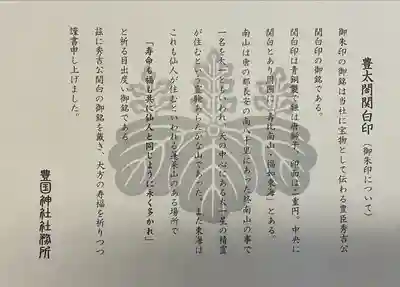 豊太閤関白印(御朱印について)
御朱印の御銘は当社に宝物として伝わる豊臣秀吉公
関白印の御銘である。
関白印は青銅製で は唐獅子、印面は二重円。中央に
関白とあり周囲に「寿比南山・福如東海」とある。
南山は唐の都長安の南八十里にあった終南山の事で
一名を太一ともいわれ、天の中心にある太一星の精霊
が住むという霊験あらたかな山であった。また東海は
これも仙人が住むといわれる蓬莱山のある場所で
「寿命も福も共に仙人と同じように永く多かれ」
と祈る目出度い御銘である。
茲に秀吉公関白の御銘を戴き、大方の寿福を祈りつつ
謹書申し上げました。
豊国神社社務所